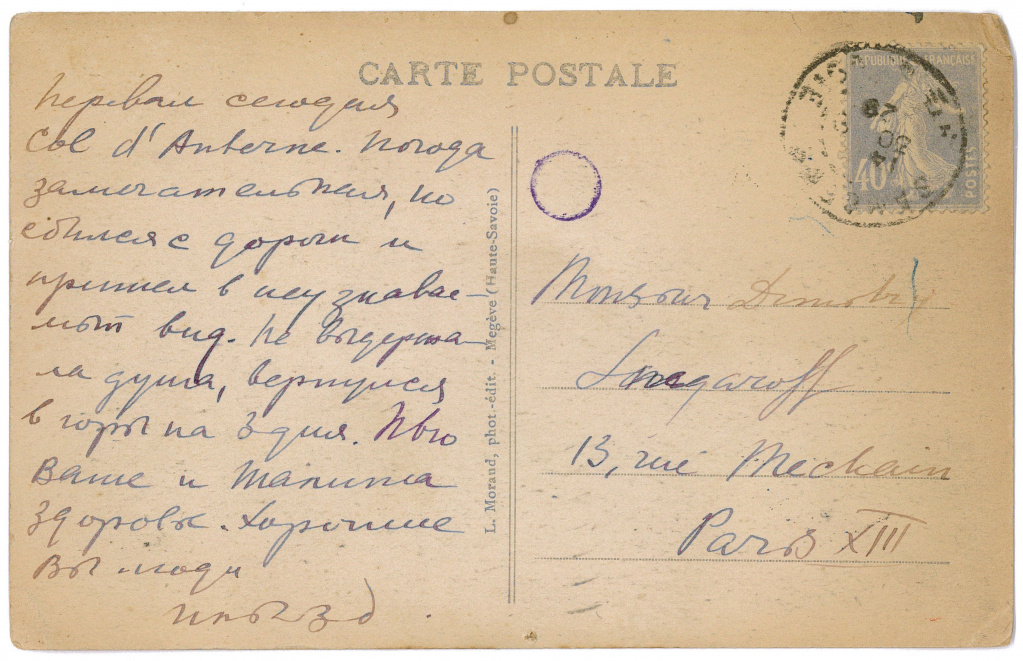 CARTE POSTALE
Перевал сегодня
Col d'Anterne. Погода
замечательная, но
сбился с дороги и
пришел в неузнавае-
мый вид. Не выдержа-
ла душа, вернулся
в горы на 3 дня. Пью
Ваше и
здоровье. Хорошие
Вы люди
L. Morand, phot.-édit. - Megève (Haute-Savoie)
REPUBLIQUE FRANÇAISE
40
POSTES
Monsieur
13, rue Mechain
Paris XIII